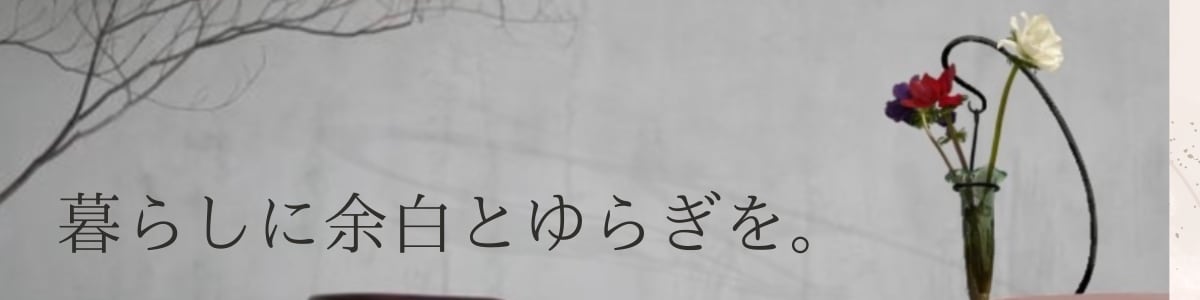 暮らしに余白とゆらぎを。